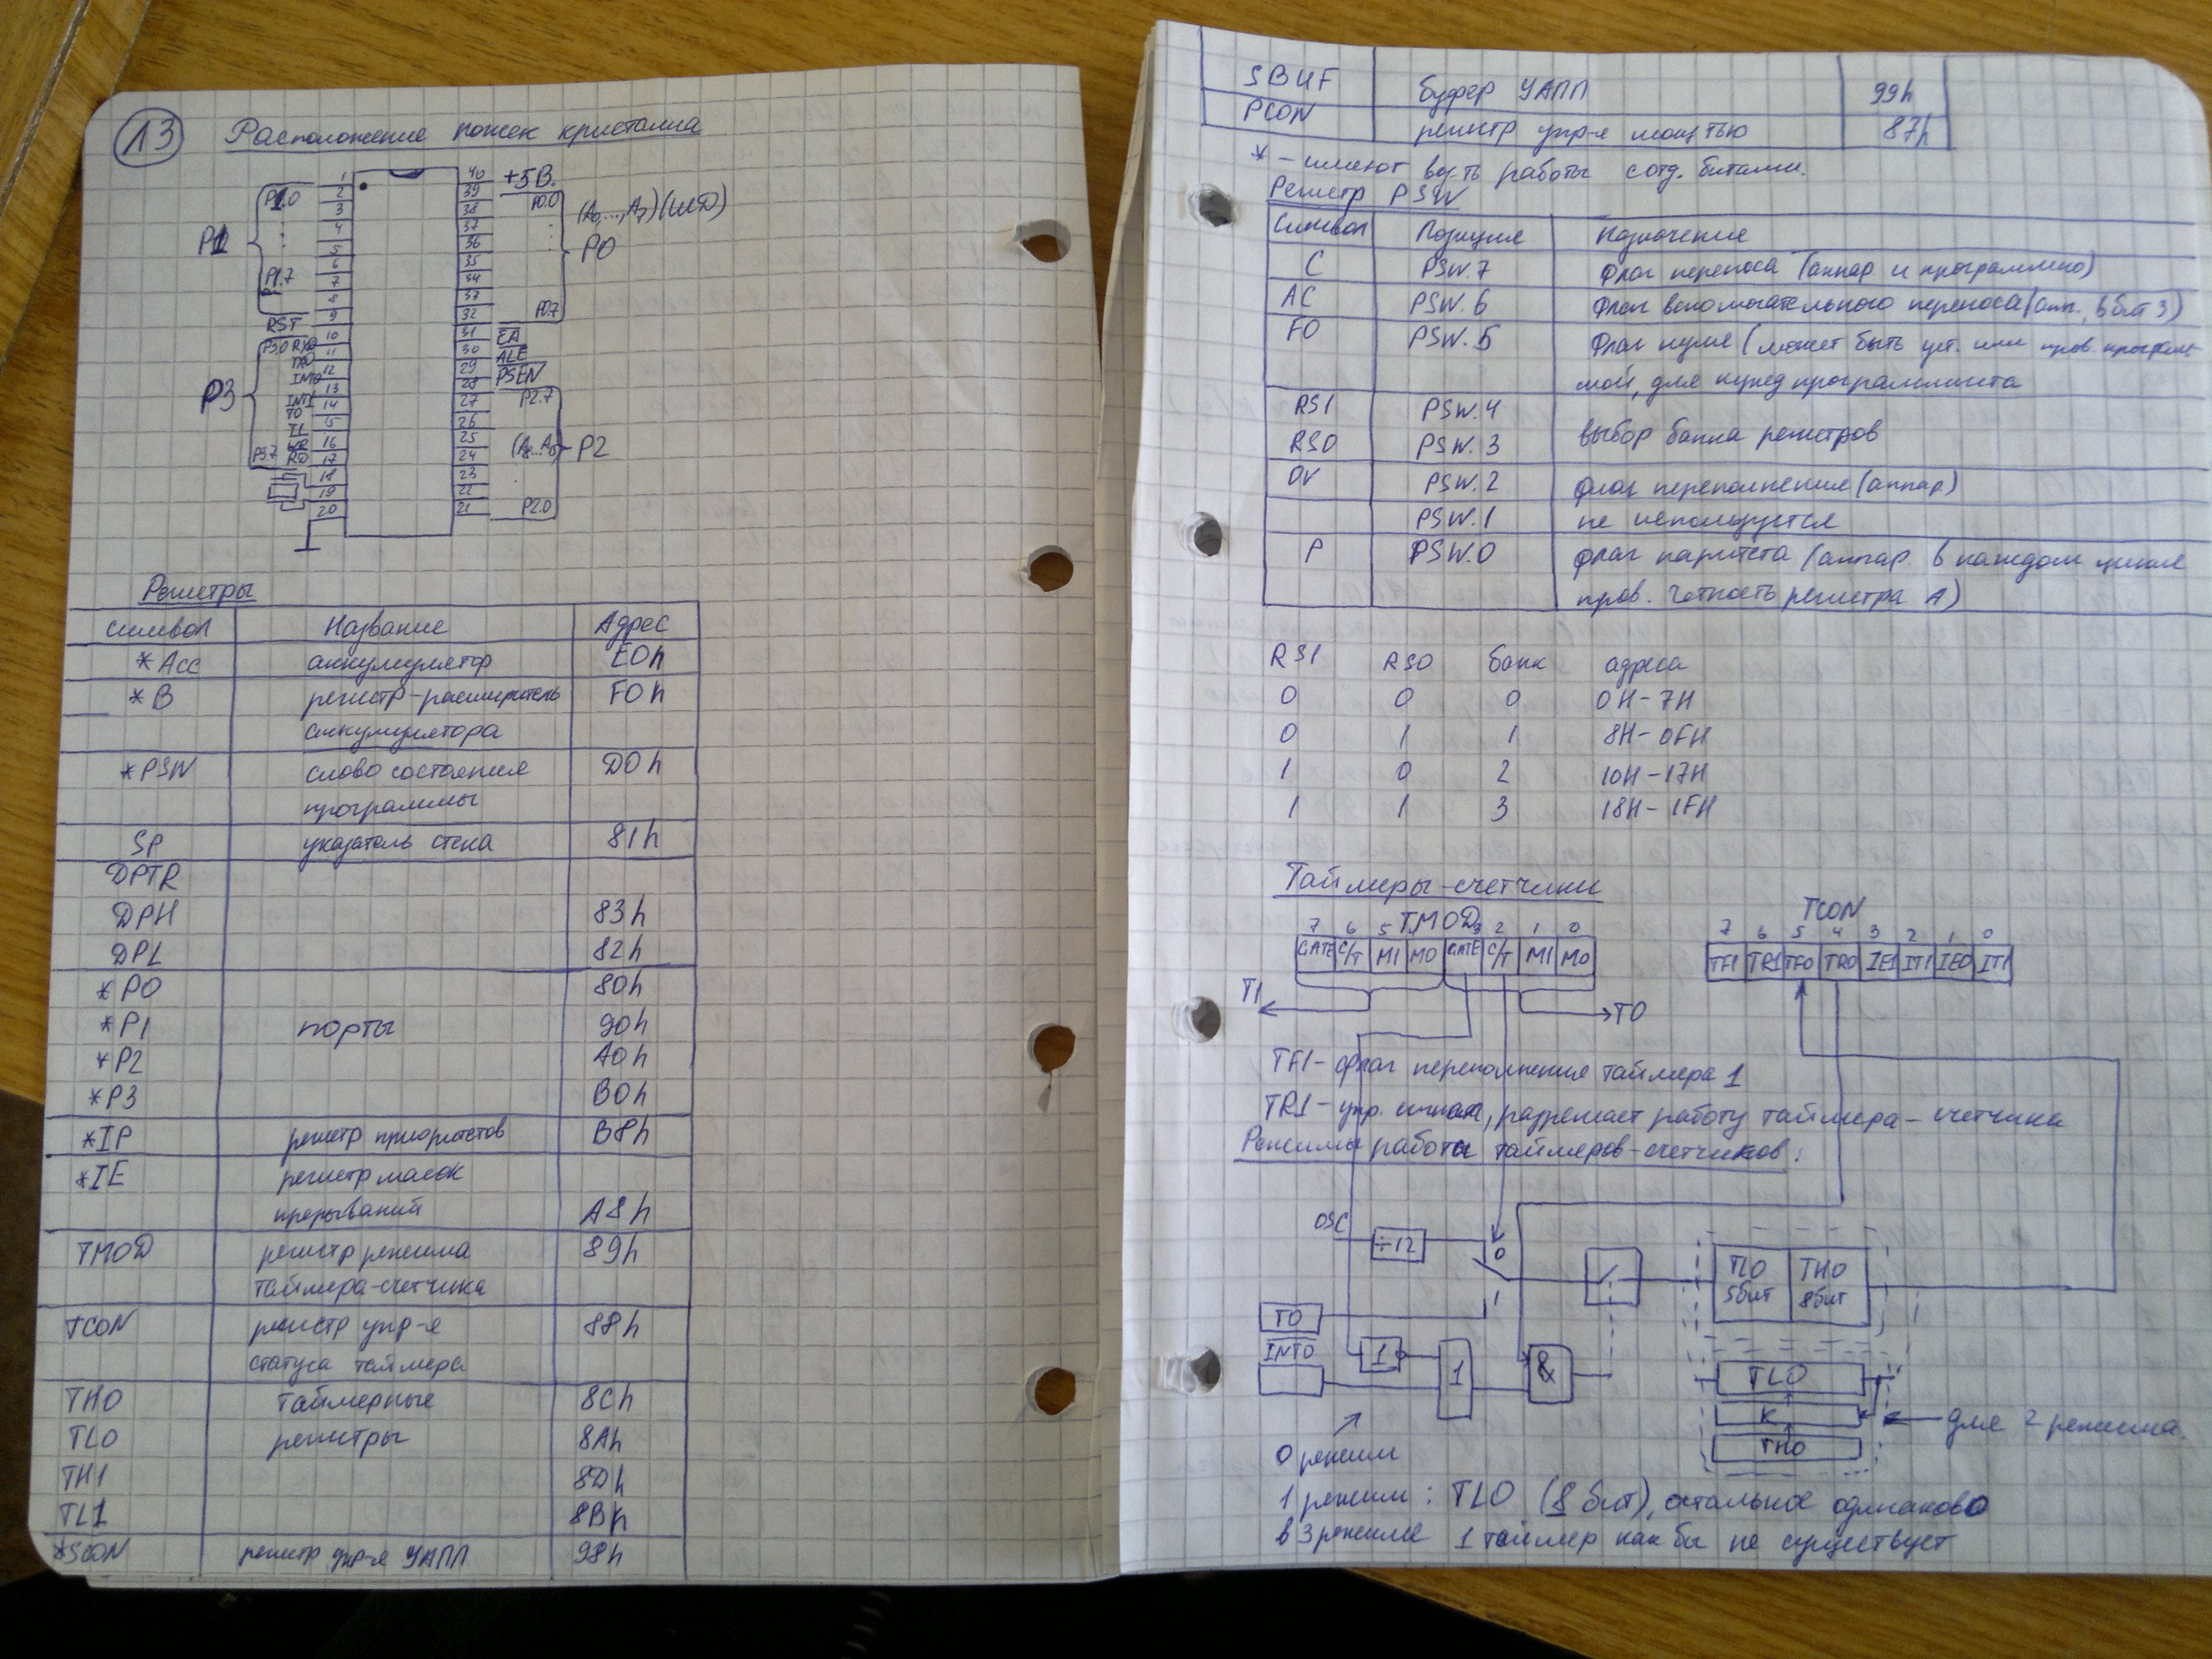 13 Расположение ножек кристалла
P1
P1.0
P1.7
RST
P3
P3.0 RXD
TXD
INT0
INT1
T0
T1
WR
P3.7 RD
1
2
3
4
5
6
7
8
9
10
11
12
13
14
15
16
17
18
19
20
40 +5В.
39 P0.0
38 (A0...,A7)(ШД)
37
36 P0
35
34
37
32 P0.7
31 EA
30 ALE
29 PSEN
28 P2.7
27
26
25
24 P2
23
22
21 P2.0
Регистры
Символ Название Адрес
*Acc аккумулятор E0h
*B регистр-расширитель F0h
аккумулятора
*PSW слово состояния D0h
программы
SP указатель стека 81h
DPTR
DPH 83h
DPL 82h
*P0 80h
*P1 порты 90h
*P2 A0h
*P3 B0h
*IP регистр приоритетов B8h
*IE регистр масок
прерываний A8h
TMOD регистр режима 89h
таймера-счетчика
TCON регистр упр-я 88h
статуса таймера
TH0 таймерные 8Ch
TL0 регистры 8Ah
TH1 8Dh
TL1 8Bh
*SCON регистр упр-я УАПП 98h
SBUF буфер УАПП 99h
PCON регистр упр-я мощтью 87h
* - имеют воз-ть работы с отд. битами.
Регистр PSW
Символ Позиция Назначение
C PSW.7 Флаг переноса (аппар и программно)
AC PSW.6 Флаг вспомогательного переноса (апп., в бит 3)
F0 PSW.5 Флаг нуля (может быть уст. или пров. програм-
мой, для нужд программиста
RS1 PSW.4
RS0 PSW.3 выбор банка регистров
OV PSW.2 флаг переполнения (аппар)
PSW.1 не используется
P PSW.0 флаг паритета (аппар. в каждом цикле
пров. четность регистра А)
RS1 RS0 банк адреса
0 0 0 0H-7H
0 1 1 8H-0FH
1 0 2 10H-17H
1 1 3 18H-1FH
Таймеры-счетчики
TMOD TCON
7 6 5 3 2 1 0
GATE C/T M1 M0 GATE C/T M1 M0
7 6 5 4 3 2 1 0
TF1 TR1 TF0 TR0 IE1 IT1 IE0 IT1
T1 T0
TF1 - флаг переполнения таймера 1
TR1 - упр. сигнал, разрешает работу таймера-счетчика
Режимы работы таймеров-счетчиков:
OSC ÷12 0
1
TL0 5бит TH0 8бит
T0
INT0
1 1 &
TL0
K
TH0
для 2 режима.
0 режим
1 режим: TL0 (8 бит), остальное одинаково
в 3 режиме 1 таймер как бы не существует